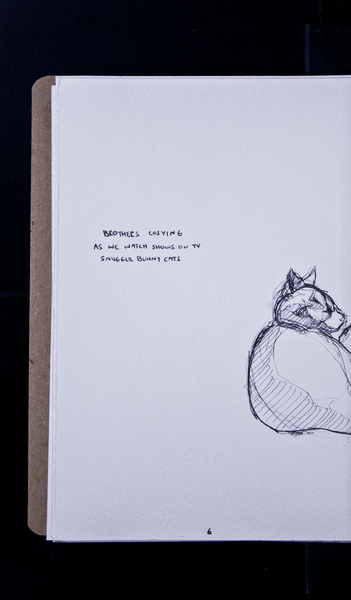 BROTHERS COSYING
AS WE WATCH SHOWS ON TV
SNUGGLE BUNNY CATS
6